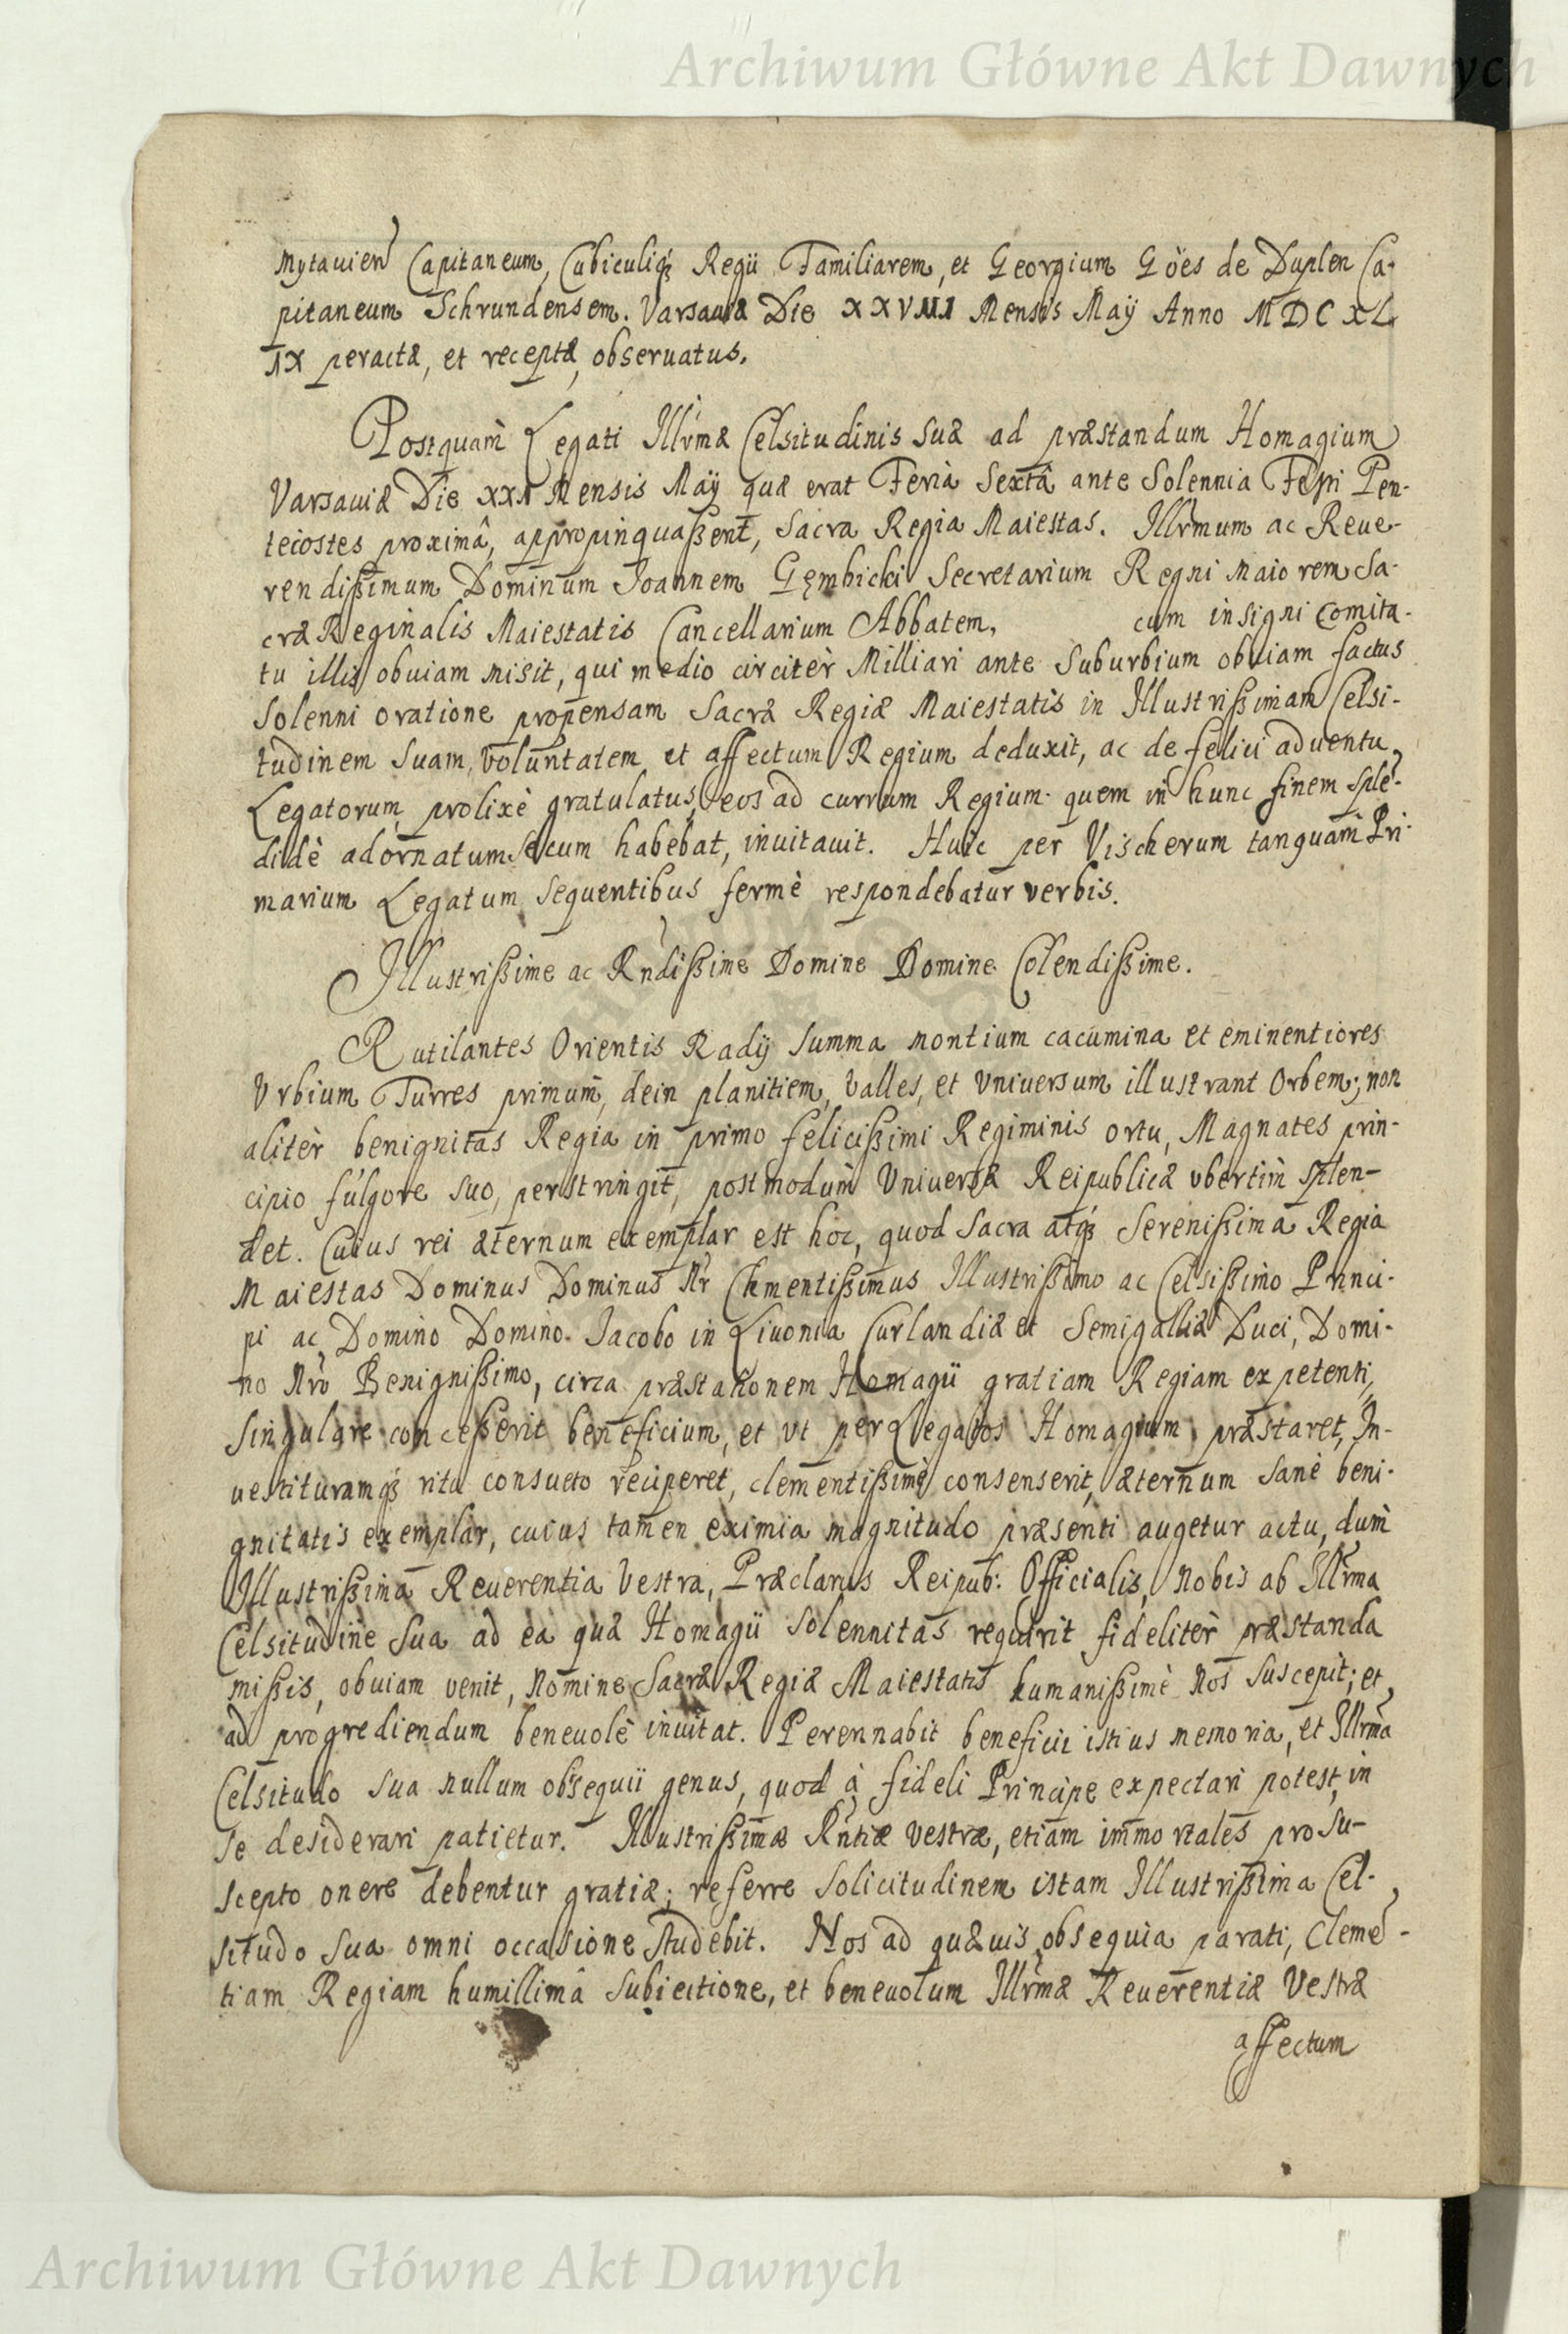 Archiwum Główne Akt Dawnych
Mytauien Capitaneum, Cubiculiq; Regii Familiarem, et Georgium Göes de Duplen Ca-
pitaneum Schrundensem. Varsauiæ Die XXVIII Mensis Maÿ Anno MDCXL
IX peractæ, et receptæ, obseruatus.
Postquam̀ Legati Illrmæ Celsitudinis suæ ad præstandum Homagium
Varsauiæ Die Mensis Maÿ quæ erat Feria Sextâ ante Solennia Festi Pen-
tecostes proximâ, appropinquaßent, Sacra Regia Maiestas. Illrmum ac Reue-
rendißimum Dominum Joannem Gęmbicki Secretarium Regni Maiorem Sa-
cræ Reginalis Maiestatis Cancellarium Abbatem, cum insigni Comita-
tu illis obuiam misit, qui medio circitèr Milliari ante Suburbium obuiam factus
Solenni oratione propensam Sacræ Regiæ Maiestatis in Illustrißimam Celsi-
tudinem Suam, voluntatem et affectum Regium deduxit, ac de felici aduentu
Legatorum prolixè gratulatus, eos ad currum Regium quem in hunc finem Splē-
didè adornatum secum habebat, inuitauit. Huic per Vischerum tanquam̀ Pri-
marium Legatum sequentibus fermè respondebatur verbis.
Illustrißime ac Rndißime Domine Domine Colendißime.
Rutilantes Orientis Radij summa montium cacumina et eminentiores
Vrbium Turres primum, dein planitiem, Valles, et Vniuersum illustrant Orbem; non
alitèr benignitas Regia in primo felicißimi Regiminis ortu, Magnates prin-
cipio fulgore suo, perstringit, postmodum̀ Vniuersæ Reipublicæ vbertim̀ splen-
det. Cuius rei æternum exemplar est hoc, quod Sacra atq; Serenißima Regia
Maiestas Dominus Dominus Nr Clementißimus Illustrißimo ac Celsißimo Princi-
pi ac Domino Domino Jacobo in Liuonia Curlandiæ et Semigalliæ Duci, Domi-
no Nro Benignißimo, circa præstationem Homagii gratiam Regiam expetenti,
Singulare conceßerit beneficium, et vt per Legatos Homagium præstaret, In-
uestituramq; ritu consueto reciperet, clementißimè consenserit, æternum sanè beni-
gnitatis exemplar, cuius tamen eximia magnitudo præsenti augetur actu, dum̀
Illustrißima Reuerentia Vestra, Præclarus Reipub: Officialis, nobis ab Illrma
Celsitudine Sua ad ea quæ Homagii solennitas requirit fidelitèr præstanda
mißis, obuiam venit, Nomine Sacræ Regiæ Maiestatis humanißimè Nos suscepit; et
ad progrediendum beneuolè inuitat. Perennabit beneficii istius memoria, et Illrma
Celsitudo Sua nullum obsequii genus, quod à fideli Principe expectari potest, in
se desiderari patietur. Illustrißimæ Rntiæ Vestræ, etiam immortales pro su-
scepto onere debentur gratiæ; referre solicitudinem istam Illustrißima Cel-
situdo Sua omni occasione studebit. Nos ad quæuis obsequia parati, Clemē-
tiam Regiam humillimâ subiectione, et beneuolum Illrmæ Reuerentiæ Vestræ
affectum
Archiwum Główne Akt Dawnych